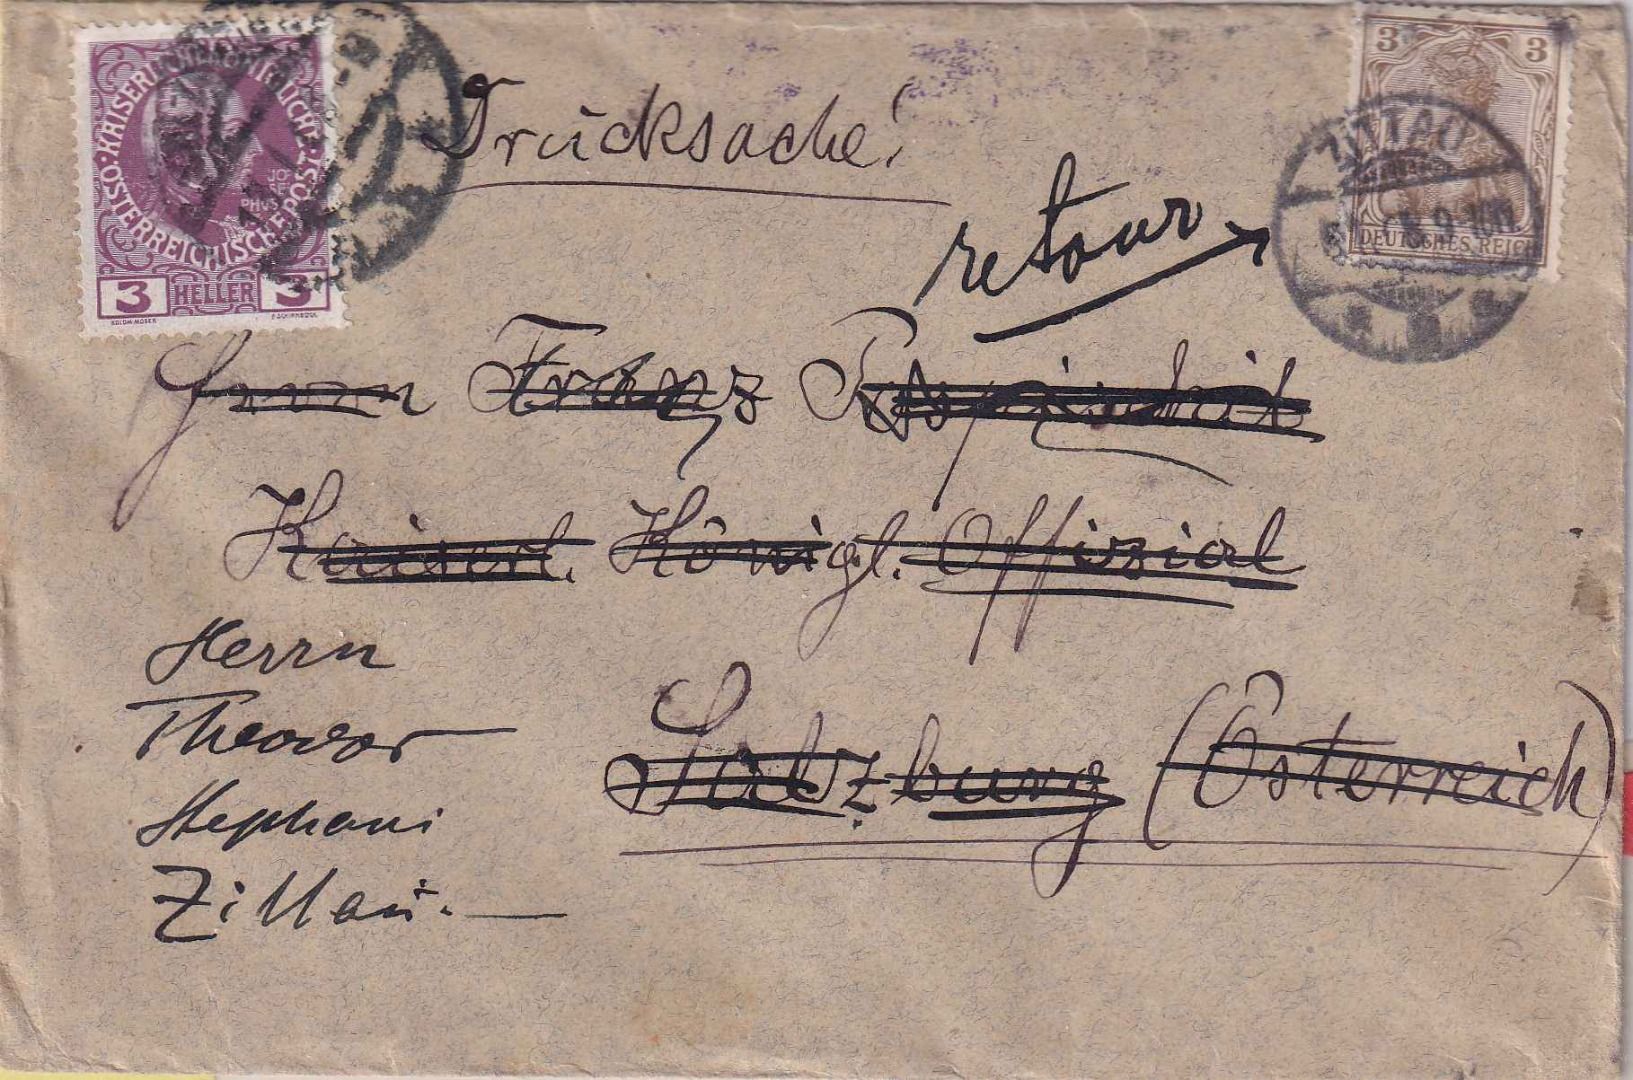 KAISERLICHE KÖNIGLICHE
ÖSTERREICHISCHE POST
JO
SE
PHUS
3 HELLER 3
KOLOM. MOSER
3 3
DEUTSCHES REICH
ZITTAU
9-10
Drucksache!
retour
Herrn Franz
Kaiserl. Königl. Offizial
Salzburg (Österreich)
Herrn
Theodor
Stephani
Zittau.